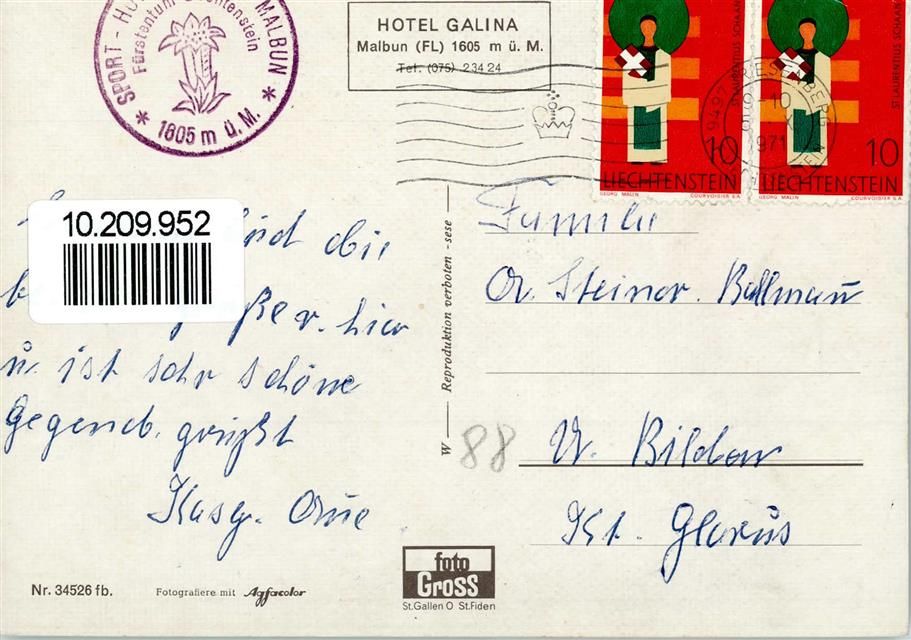 SPORT - HO MALBUN
Fürstentum Liechtenstein
* 1605 m ü. M. *
HOTEL GALINA
Malbun (FL) 1605 m ü. M.
Tel. (075) 2 34 24
ST. LAURENTIUS SCHAAN
10
LIECHTENSTEIN
GEORG MALIN COURVOISIER S.A.
ST. LAURENTIUS SCHAAN
10
LIECHTENSTEIN
GEORG MALIN COURVOISIER S.A.
9497 TRIESENBERG
-10
971
10.209.952
sind die
hier
u. ist sehr schöne
Gegend. grüßt
Familie
Steiner. Ballmann
Bilden
Kt. Glarus
W — Reproduktion verboten - sese
88
Nr. 34526 fb.
Fotografiere mit Agfacolor
foto
Gross
St.Gallen O St.Fiden